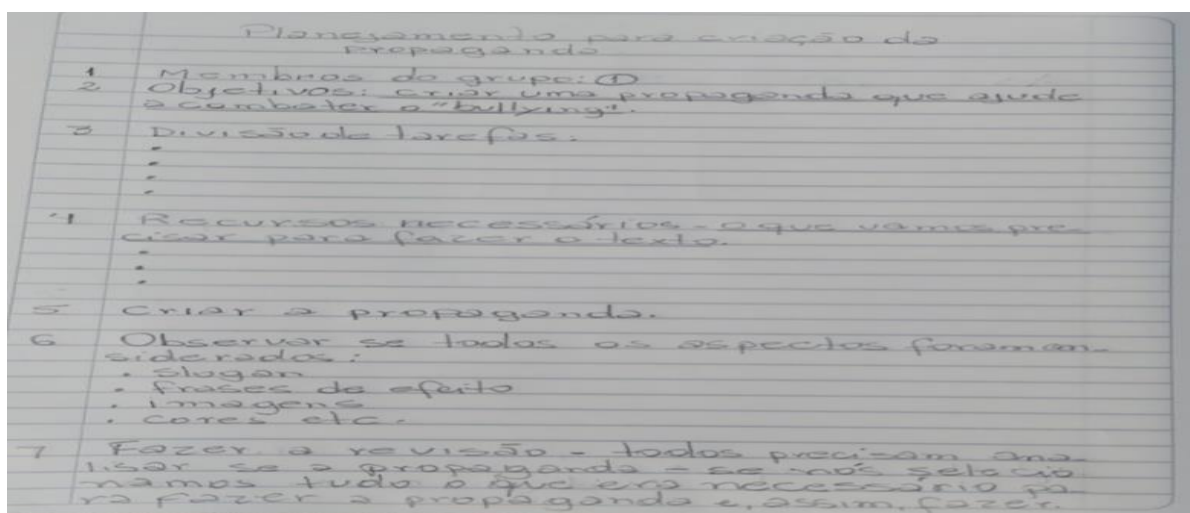 Planejamento para criação da
propaganda
1 Membros do grupo: ①
2 Objetivos: criar uma propaganda que ajude
a combater o "bullying".
3 Divisão de tarefas:
•
•
•
•
4 Recursos necessários - o que vamos pre-
cisar para fazer o texto.
•
•
•
5 Criar a propaganda.
6 Observar se todos os aspectos foram con-
siderados:
• slogan
• frases de efeito
• imagens
• cores etc.
7 Fazer a revisão - todos precisam ana-
lisar se a propaganda - se nós selecio
namos tudo o que era necessário pa-
ra fazer a propaganda e, assim, fazer.